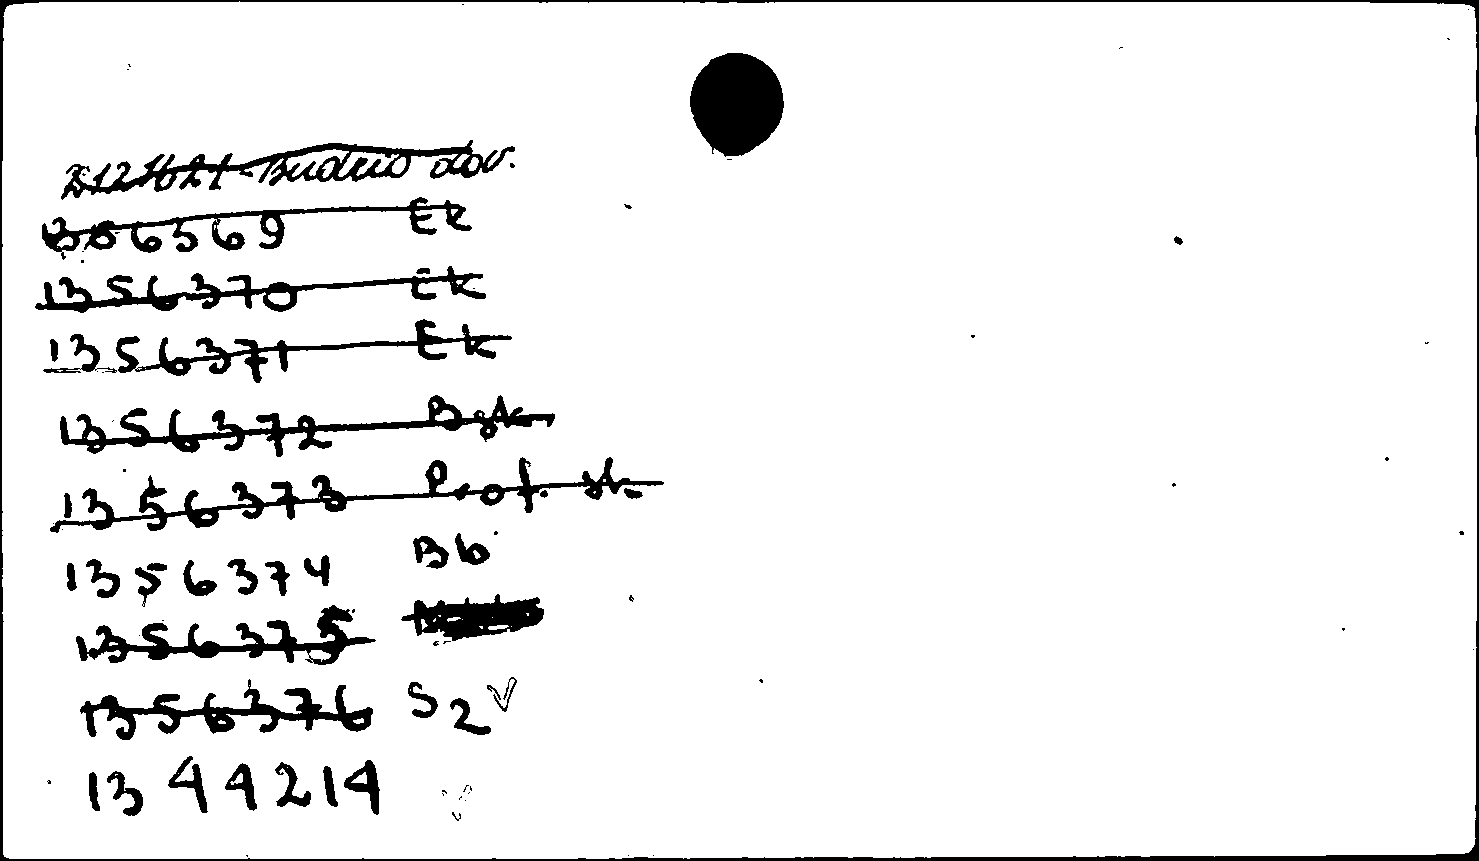 dov.
1356369 Ek
1356370 Ek
1356371 Ek
1356372 Bsk.
1356373 Prof. st.
1356374 Bb
1356375
1356376 S2 ✓
1344214 ✓